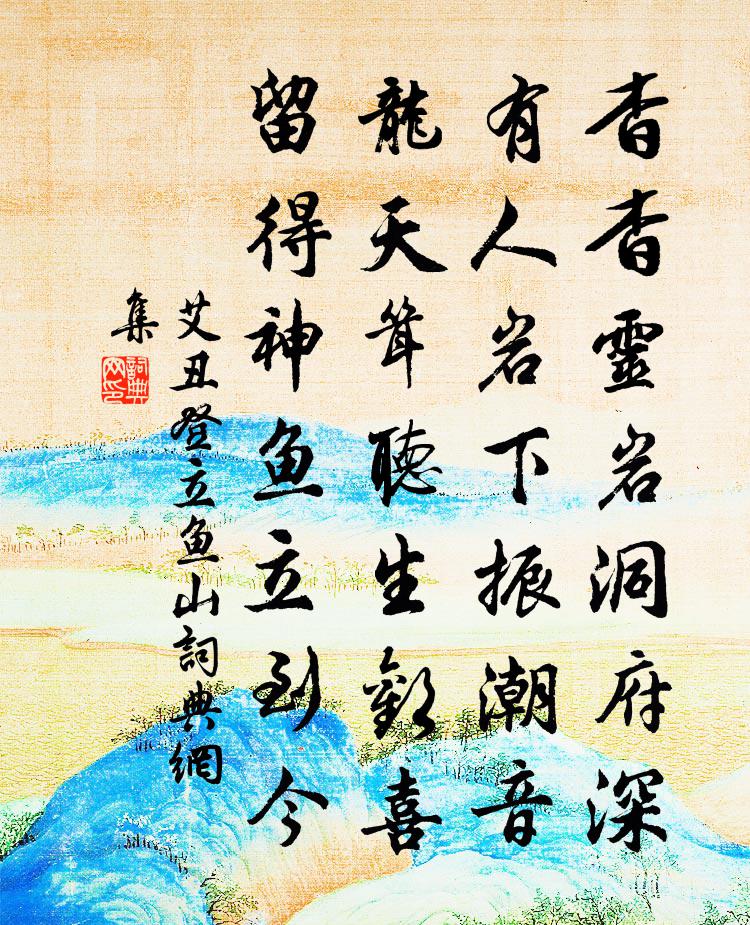 杳杳靈岩洞府深
有人岩下振潮音
龍天耸聽生歡喜
留得神鱼立到今
艾丑登立鱼山詞典網
集
詞典
网印